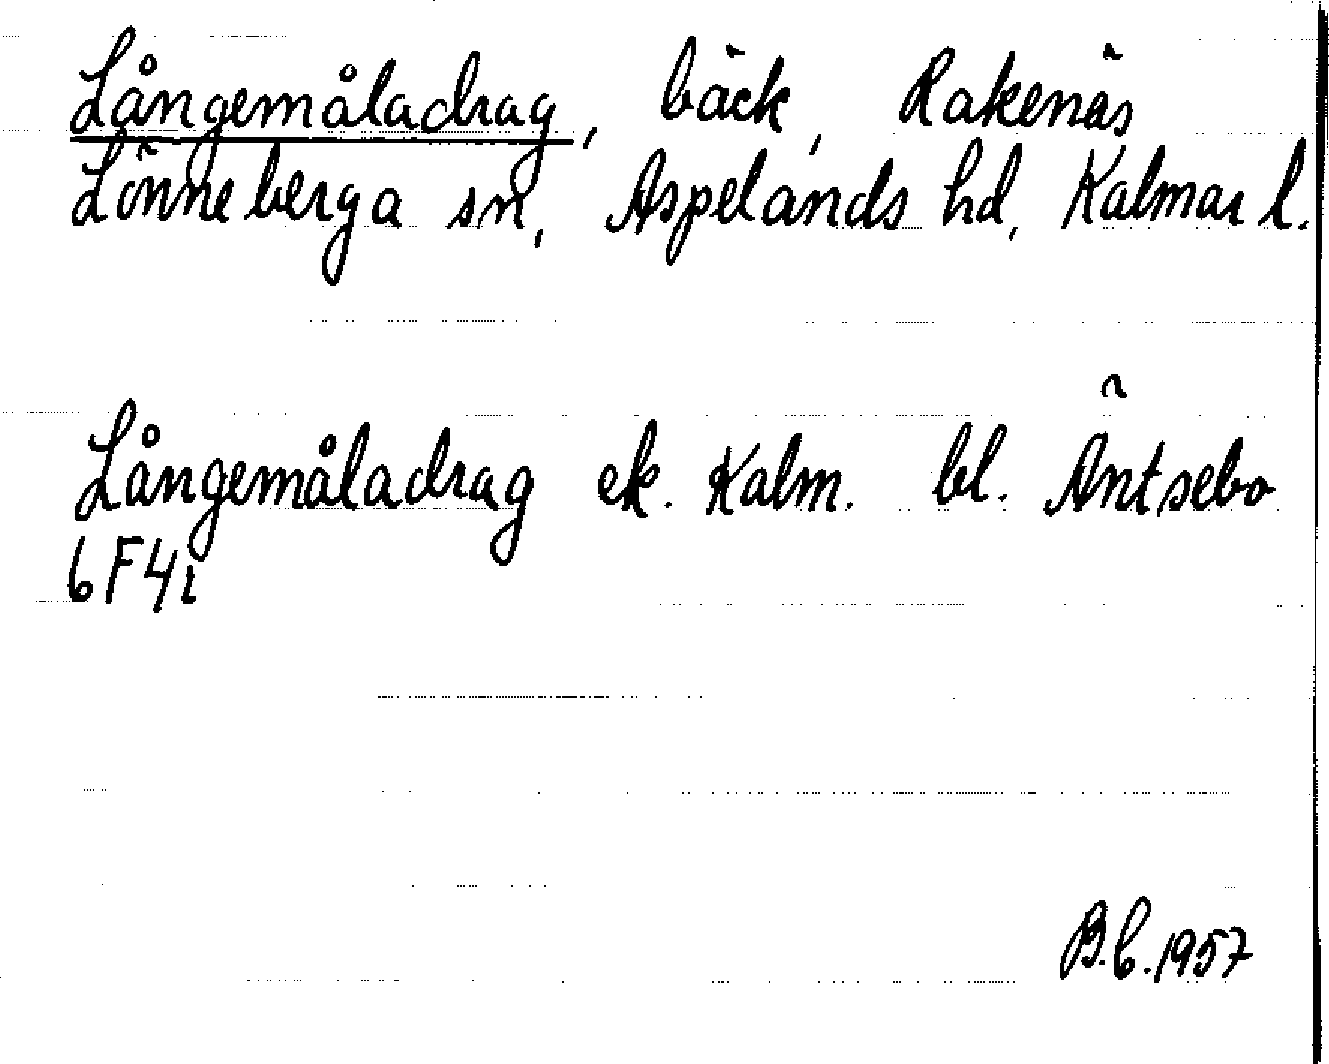 Långemåladrag, bäck, Rakenäs
Lönneberga sn, Aspelands hd, Kalmar l.
Långemåladrag ek. Kalm. bl. Äntsebo
6F4i
B.C.1957